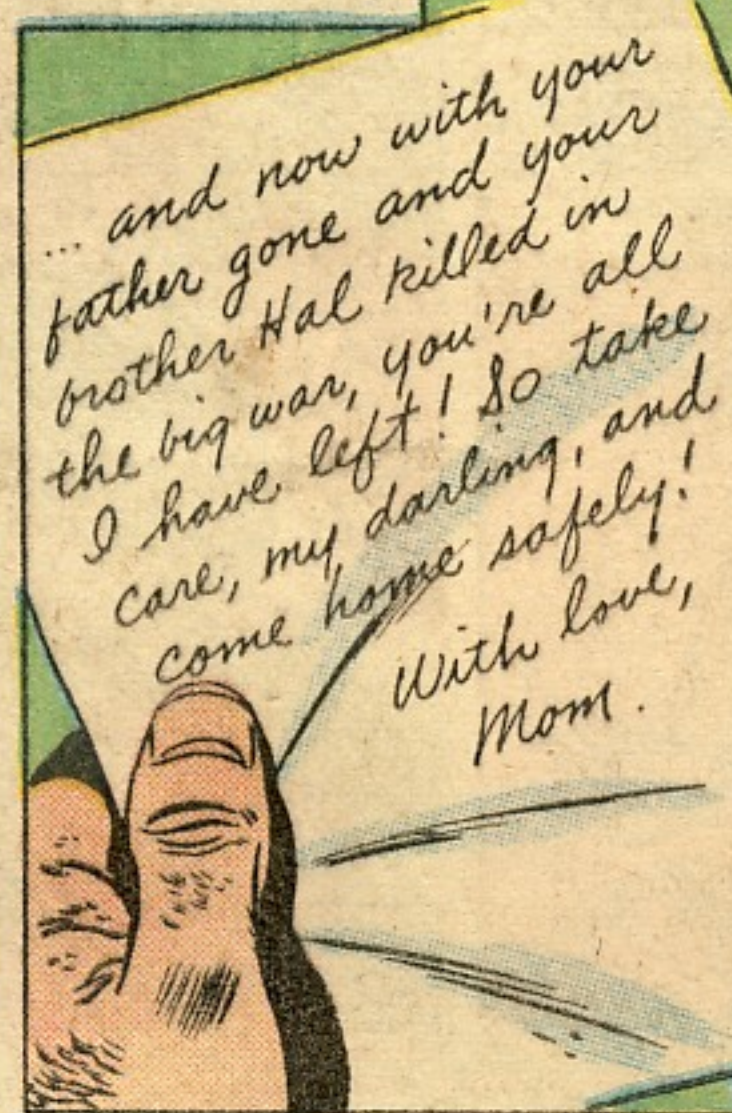 ... and now with your
father gone and your
brother Hal killed in
the big war, you're all
I have left! So take
care, my darling, and
come home safely!
With love,
Mom.